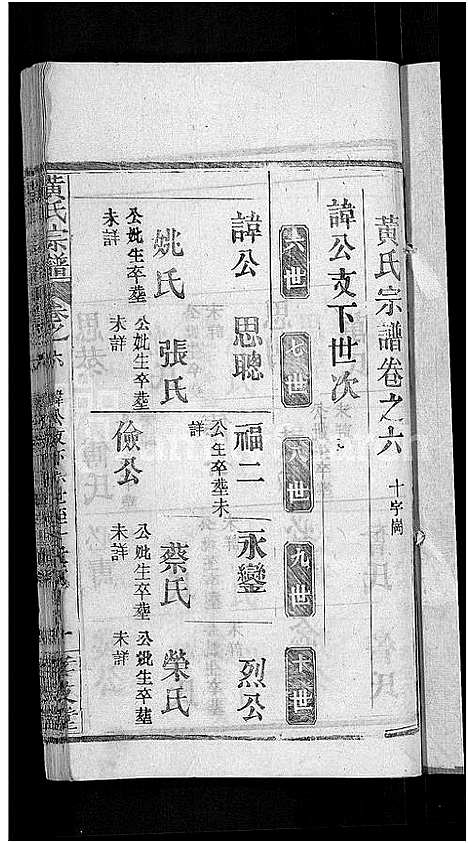 黃氏宗譜卷之六 十字崗
諱公支下世次
六世 七世 八世 九世 十世
諱公 思聰 福二 永鑾 烈公
公生卒塟未詳
姚氏 張氏 儉公 蔡氏 榮氏
公妣生卒塟未詳
公妣生卒塟未詳
公妣生卒塟未詳
公妣生卒塟未詳
黃氏宗譜 卷之六